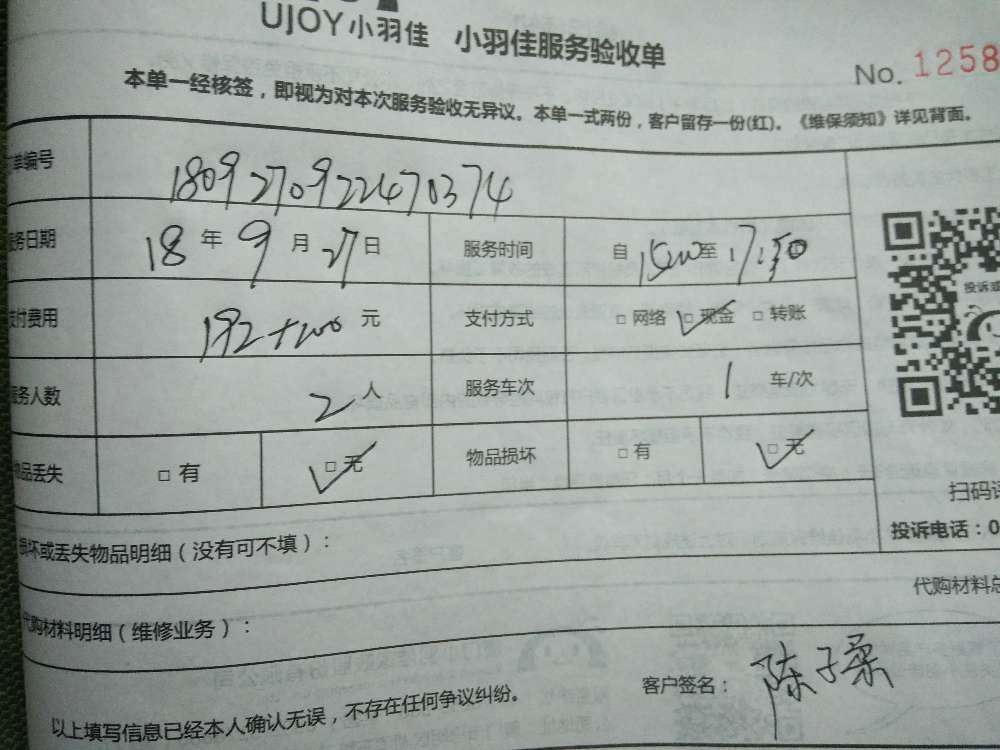 UJOY小羽佳 小羽佳服务验收单
No. 1258
本单一经核签，即视为对本次服务验收无异议。本单一式两份，客户留存一份(红)。《维保须知》详见背面。
订单编号 180927092247037​4
服务日期 18年9月27日 服务时间 自15:00至17:50
支付费用 192+200元 支付方式 □网络 ☑现金 □转账
服务人数 2人 服务车次 1车/次
物品丢失 □有 ☑无 物品损坏 □有 ☑无
投诉或
扫码
投诉电话：0
损坏或丢失物品明细（没有可不填）：
代购材料总
代购材料明细（维修业务）：
客户签名：陈子柔
以上填写信息已经本人确认无误，不存在任何争议纠纷。